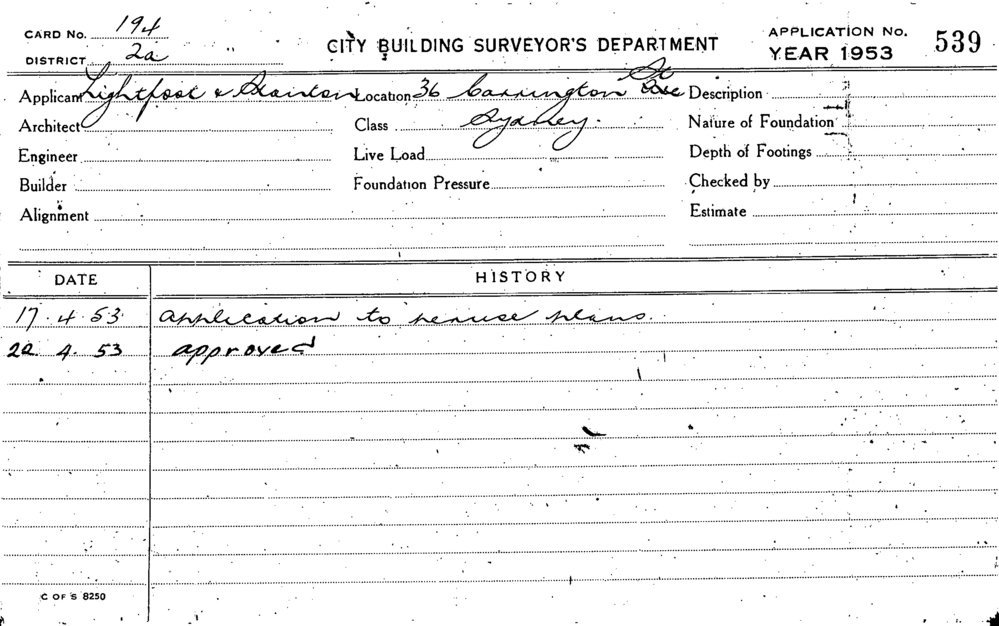 CARD No. 194
DISTRICT 2a
CITY BUILDING SURVEYOR'S DEPARTMENT
APPLICATION No. 539
YEAR 1953
Applicant Lightfoot & Stanton Location 36 Carrington St Description
Architect Class Sydney. Nature of Foundation
Engineer Live Load Depth of Footings
Builder Foundation Pressure Checked by
Alignment Estimate
DATE HISTORY
17. 4. 53. Application to peruse plans.
22. 4. 53 approved
C OF S 8250